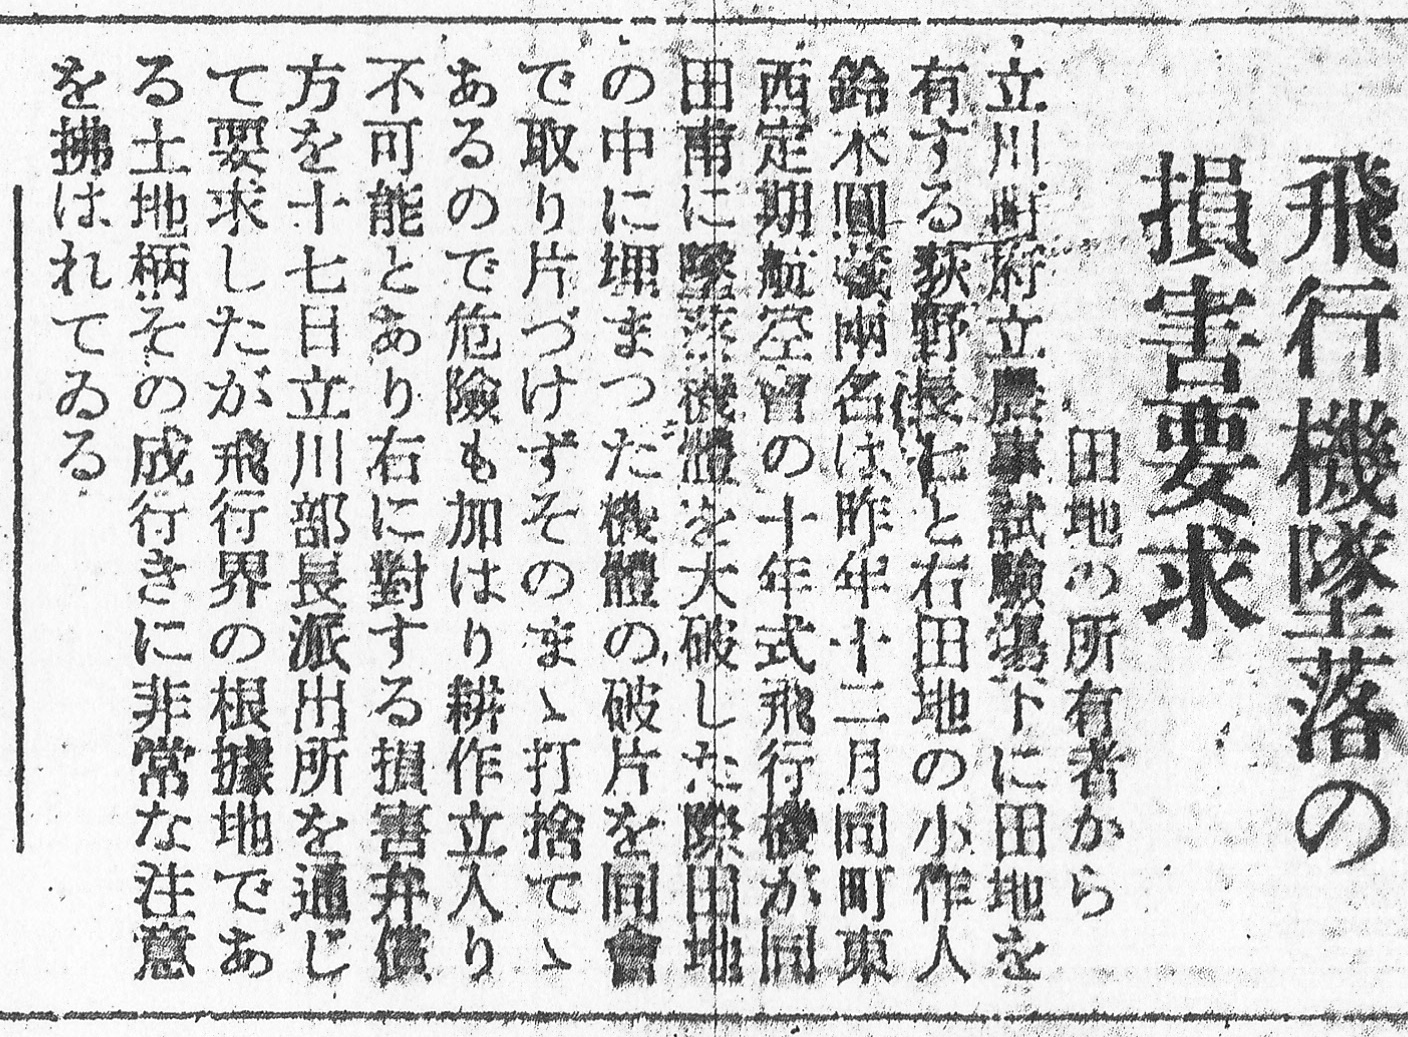 飛行機墜落の
損害要求
田地の所有者から
立川町府立農事試驗場下に田地を
有する荻野長七と右田地の小作人
鈴木 藏兩名は昨年十二月同町東
西定期航空會の十年式飛行機が同
田甫に墜落機體を大破した際田地
の中に埋まつた機體の破片を同會
で取り片づけずそのまゝ打捨てゝ
あるので危險も加はり耕作立入り
不可能とあり右に對する損害弁償
方を十七日立川部長派出所を通じ
て要求したが飛行界の根據地であ
る土地柄その成行きに非常な注意
を拂はれてゐる